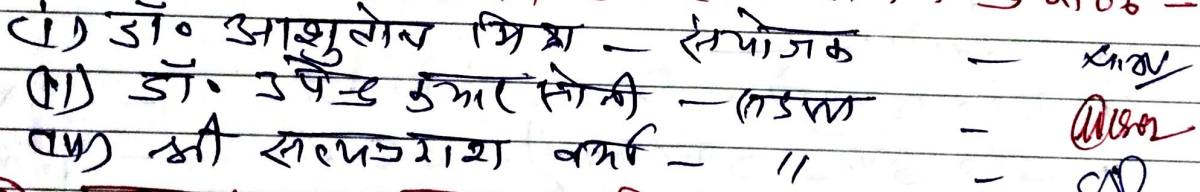 (i) डॉ॰ आशुतोष मिश्रा - संयोजक -
(ii) डॉ. उपेन्द्र कुमार सोनी - सदस्य -
(iii) श्री सत्यप्रकाश वर्मा - " -